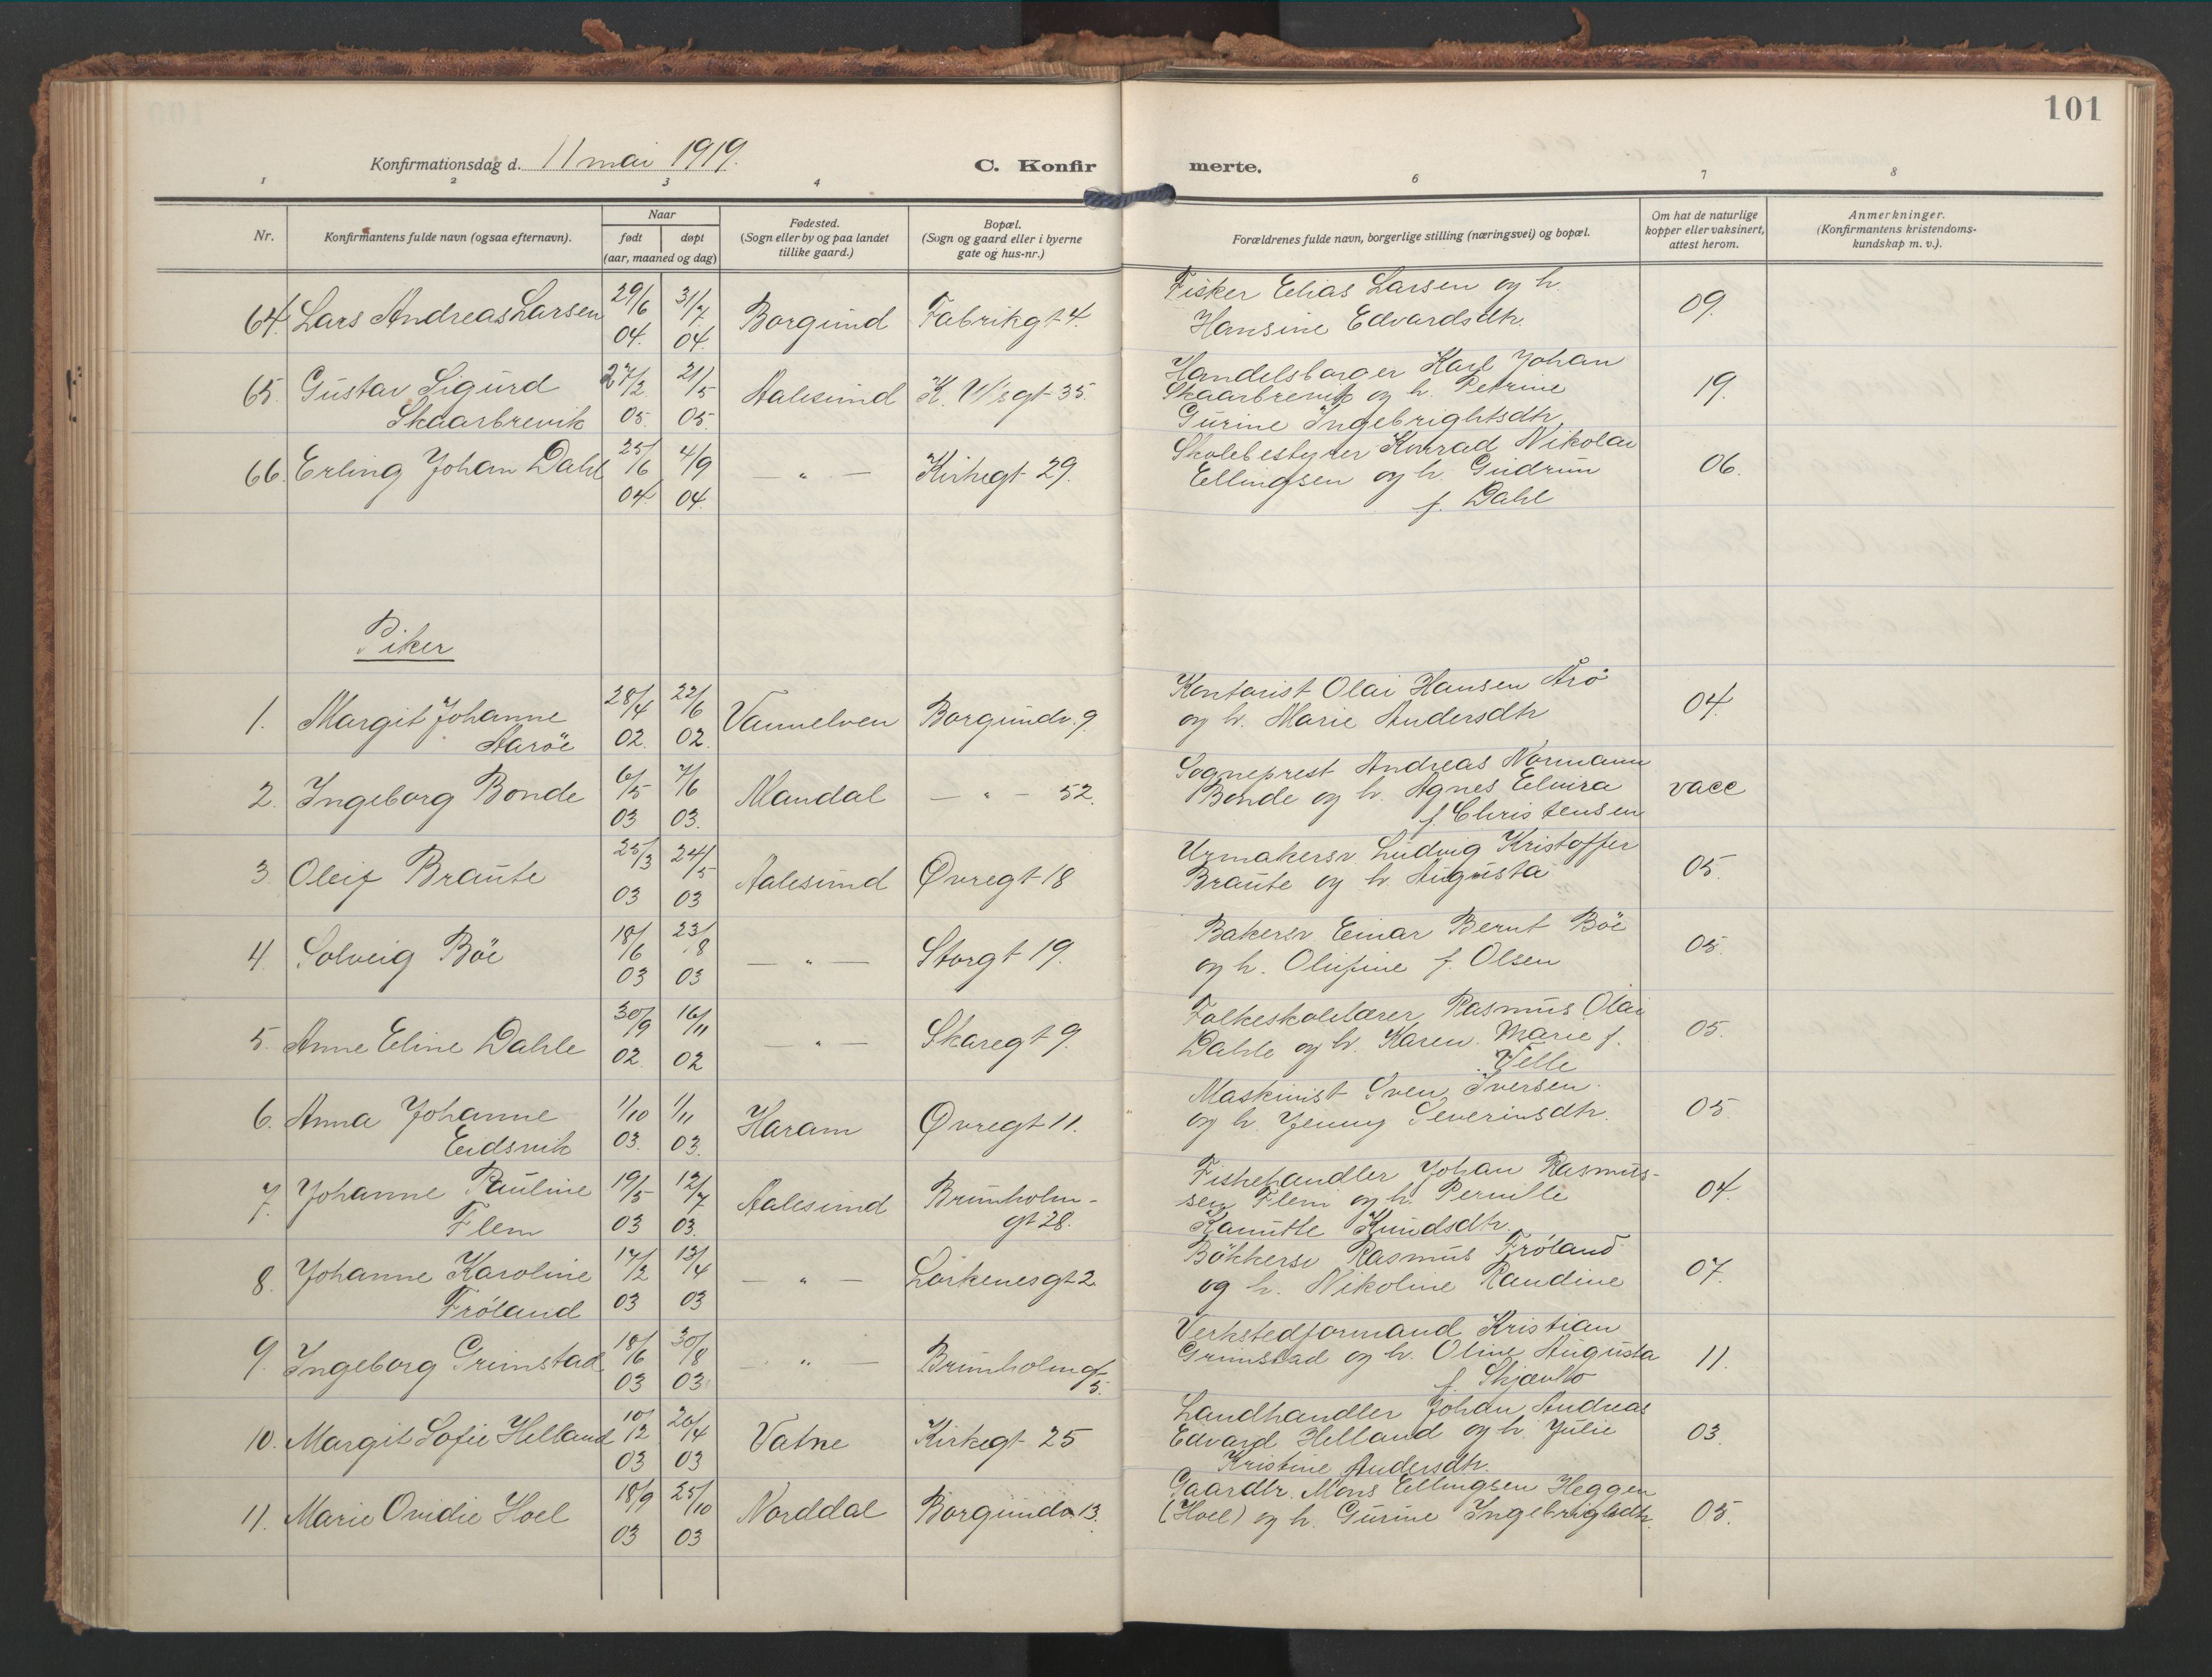 101
Konfirmationsdag d. 11 mai 1919.
C. Konfir merte.
1 2 3 4 6 7 8
Nr.
Konfirmantens fulde navn (ogsaa efternavn).
Naar
født døpt
(aar, maaned og dag)
Fødested.
(Sogn eller by og paa landet
tillike gaard.)
Bopæl.
(Sogn og gaard eller i byerne
gate og hus-nr.)
Forældrenes fulde navn, borgerlige stilling (næringsvei) og bopæl.
Om hat de naturlige
kopper eller vaksinert,
attest herom.
Anmerkninger.
(Konfirmantens kristendoms-
kundskap m. v.).
64. Lars Andreas Larsen 29/6 04. 31/7 04. Borgund Fabrikgt 4.
Fisker Elias Larsen og h.
Hansine Edvardsdtr.
09.
65. Gustav Sigurd
Skaarbrevik
27/2 05. 21/5 05. Aalesund K. W's gt 35.
Handelsborger Karl Johan
Skaarbrevik og h. Petrine
Gurine Ingebrightsdtr.
19.
66. Erling Johan Dahl 25/6 04 4/9 04. — " — Kirkegt 29.
Skolebestyrer Konrad Nikolai
Ellingsen og h. Gudrun
f. Dahl
06.
Piker
1. Margit Johanne
Aaröe
28/4 02. 22/6 02. Vannelven Borgundv. 9
Kontorist Olai Hansen Årö
og h. Marie Andersdtr
04.
2. Ingeborg Bonde 6/5 03 7/6 03. Mandal — " — 52.
Sogneprest Andreas Normann
Bonde og h. Agnes Elvira
f. Christensen
vacc
3. Oleif Braute 25/3 03 24/5 03 Aalesund Øvregt 18
Urmakersv. Ludvig Kristoffer
Braute og h. Augusta
05.
4. Solveig Böe 18/6 03 23/8 03 — " — Storgt 19.
Bakersv. Einar Bernt Böe
og h. Olufine f. Olsen
05.
5. Anne Eline Dahle 30/9 02. 16/11 02 — " — Skaregt 9.
Folkeskolelærer Rasmus Olai
Dahle og h. Karen Marie f.
Velle
05.
6. Anna Johanne
Eidsvik
1/10 03. 1/11 03. Haram Øvregt 11.
Maskinist Sven Iversen
og h. Jenny Severinsdtr.
05.
7. Johanne Pauline
Flem
19/5 03 12/7 03. Aalesund Brunholm-
gt 28.
Fiskehandler Johan Rasmus-
sen Flem og h. Pernille
Kanutte Knudsdtr.
04.
8. Johanne Karoline
Fröland
17/2 03 13/4 03 — " — Lorkenesgt 2
Bökkersv Rasmus Fröland
og h. Nikoline Randine
07.
9. Ingeborg Grimstad 18/6 03 30/8 03 — " — Brunholmgt
5.
Verkstedformand Kristian
Grimstad og h. Oline Augusta
11.
10. Margit Sofie Helland 10/12 03 20/4 03 Vatne Kirkegt 25
Landhandler Johan Andreas
Edvard Helland og h. Julie
Kristine Andersdtr.
03.
11. Marie Ovidie Hoel 18/9 03 25/10 03 Norddal Borgundv 13.
Gaardbr. Mons Ellingsen Heggen
(Hoel) og h. Gurine Ingebrigtsdtr.
05.